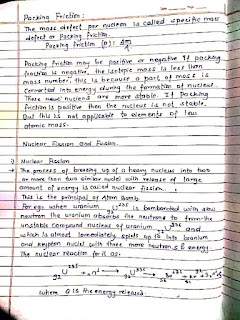 Packing Friction :
The mass defect per nucleon is called specific mass
defect or Packing friction.
Packing friction (P) : Δm
A
Packing friction may be positive or negative If packing
friction is negative, the isotopic mass is less than
mass number, this is because a part of mass is
converted into energy during the formation of nucleus.
These nuclei are more stable. If packing
friction is positive then the nucleus is not stable.
But this is not applicable to elements of less
atomic mass.
Nuclear Fission and Fusion.
Nuclear Fission
The process of breaking up of a heavy nucleus into two
or more than two similar nuclei with release of large
amount of energy is called nuclear fission.
This is the principal of Atom bomb
For eg: when uranium 92U235 is bombarded with slow
neutron the uranium absorbs the neutrons to form the
unstable compound nucleus of uranium 92U236 and
which is almost immediately splits up into
and krypton nuclei with three more neutrons & energy
The nuclear reaction for it is:
92U235 + 0n1 → 92U236 →
where Q is the energy released